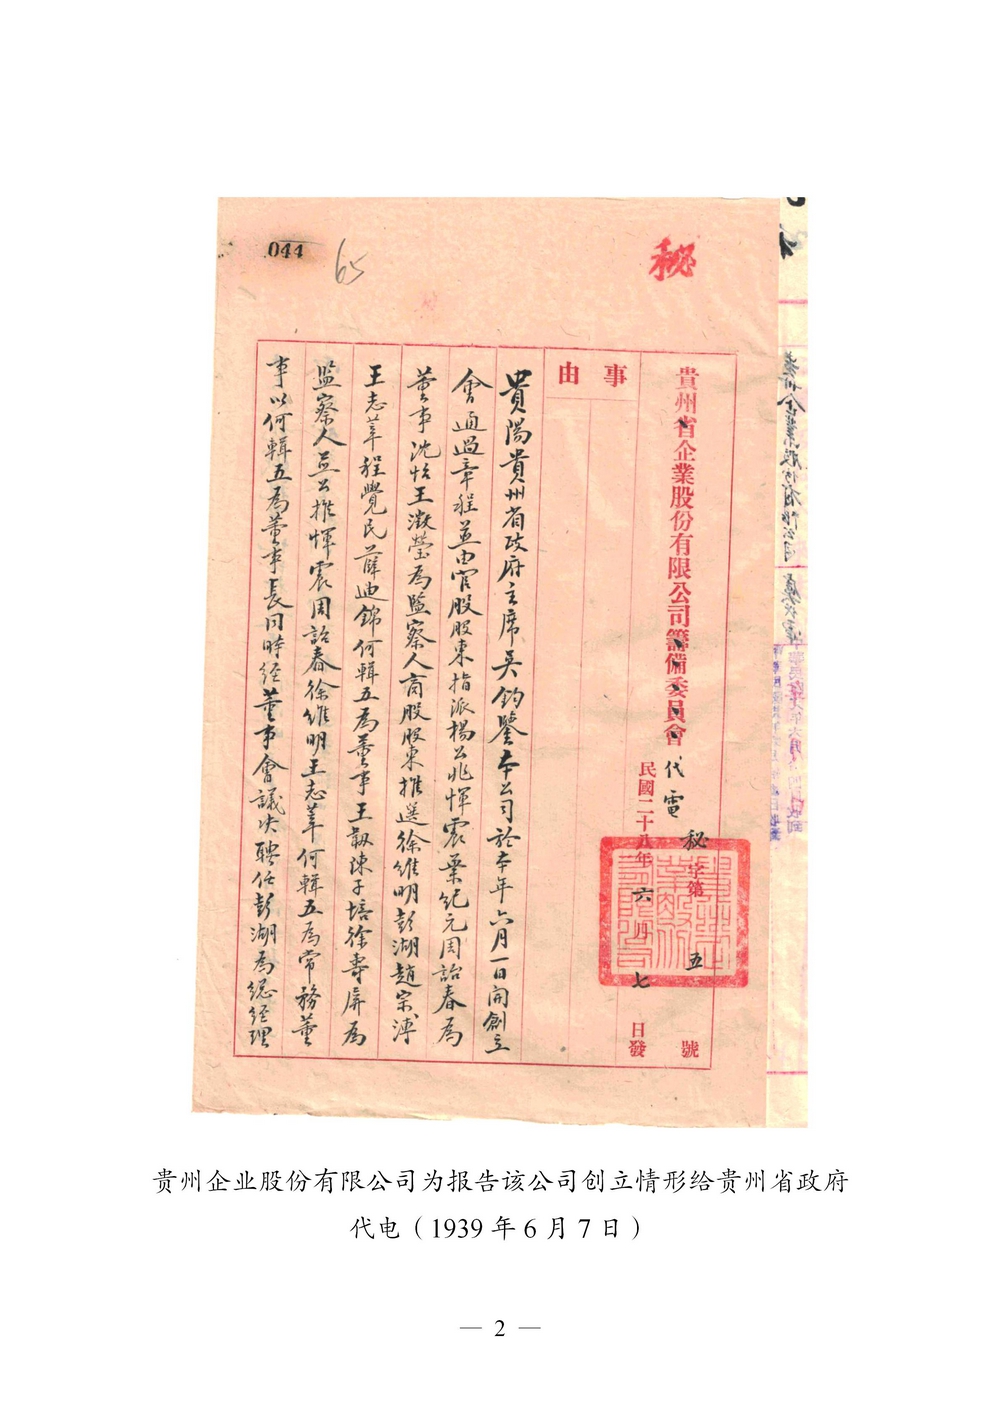 044
65
秘
貴州省企業股份有限公司籌備委員會代電 秘字第五號
民國二十八年六月七日發
事由
貴陽貴州省政府主席吳鈞鑒本公司於本年六月一日開創立
會通過章程並由官股股東指派楊公兆惲震葉紀元周詒春為
董事沈怡王澂瑩為監察人商股股東推選徐維明彭湖趙宗溥
王志莘程覺民薛迪錦何輯五為董事王錫陳子培徐壽屏為
監察人並公推惲震周詒春徐維明王志莘何輯五為常務董
事以何輯五為董事長同時經董事會議決聘任彭湖為總經理
贵州企业股份有限公司为报告该公司创立情形给贵州省政府
代电（1939 年 6 月 7 日）
— 2 —